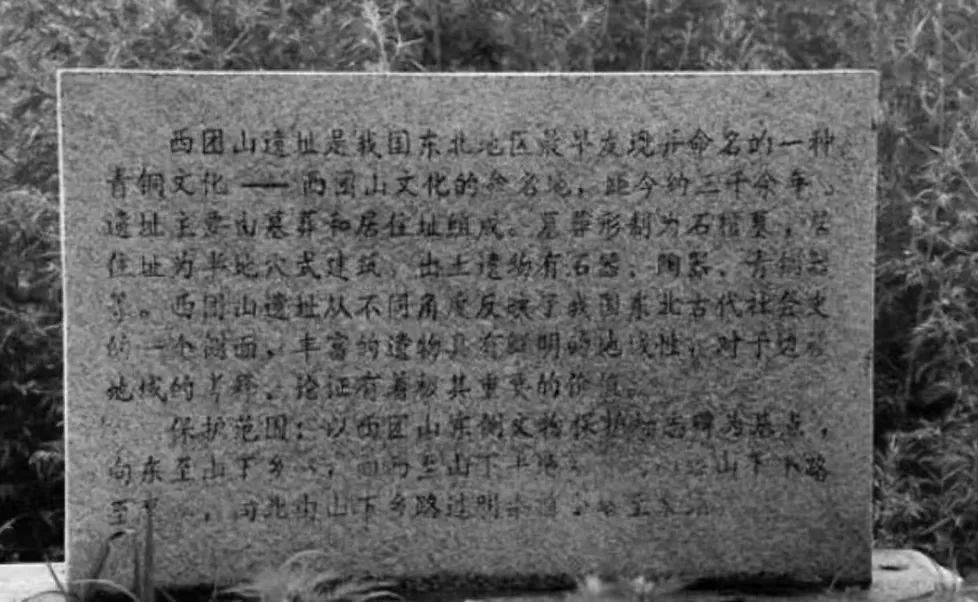 西团山遗址是我国东北地区最早发现并命名的一种
青铜文化——西团山文化的命名地，距今约三千余年。
遗址主要由墓葬和居住址组成。墓葬形制为石棺墓，居
住址为半地穴式建筑。出土遗物有石器、陶器、青铜器
等。西团山遗址从不同角度反映了我国东北古代社会史
的一个侧面，丰富的遗物具有鲜明的地域性，对于边
地域的 释、论证有着极其重要的价值。
保护范围：以西团山东侧文物保护标志碑为基点，
向东至山下乡 ，向西至山下 山下 路
至 ，向北由山下乡路过 至